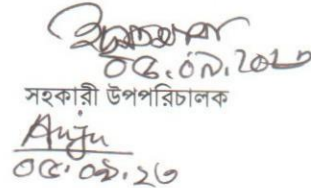 ০৫.০৯.২০২৩
সহকারী উপপরিচালক
Anju
০৫.০৯.২৩